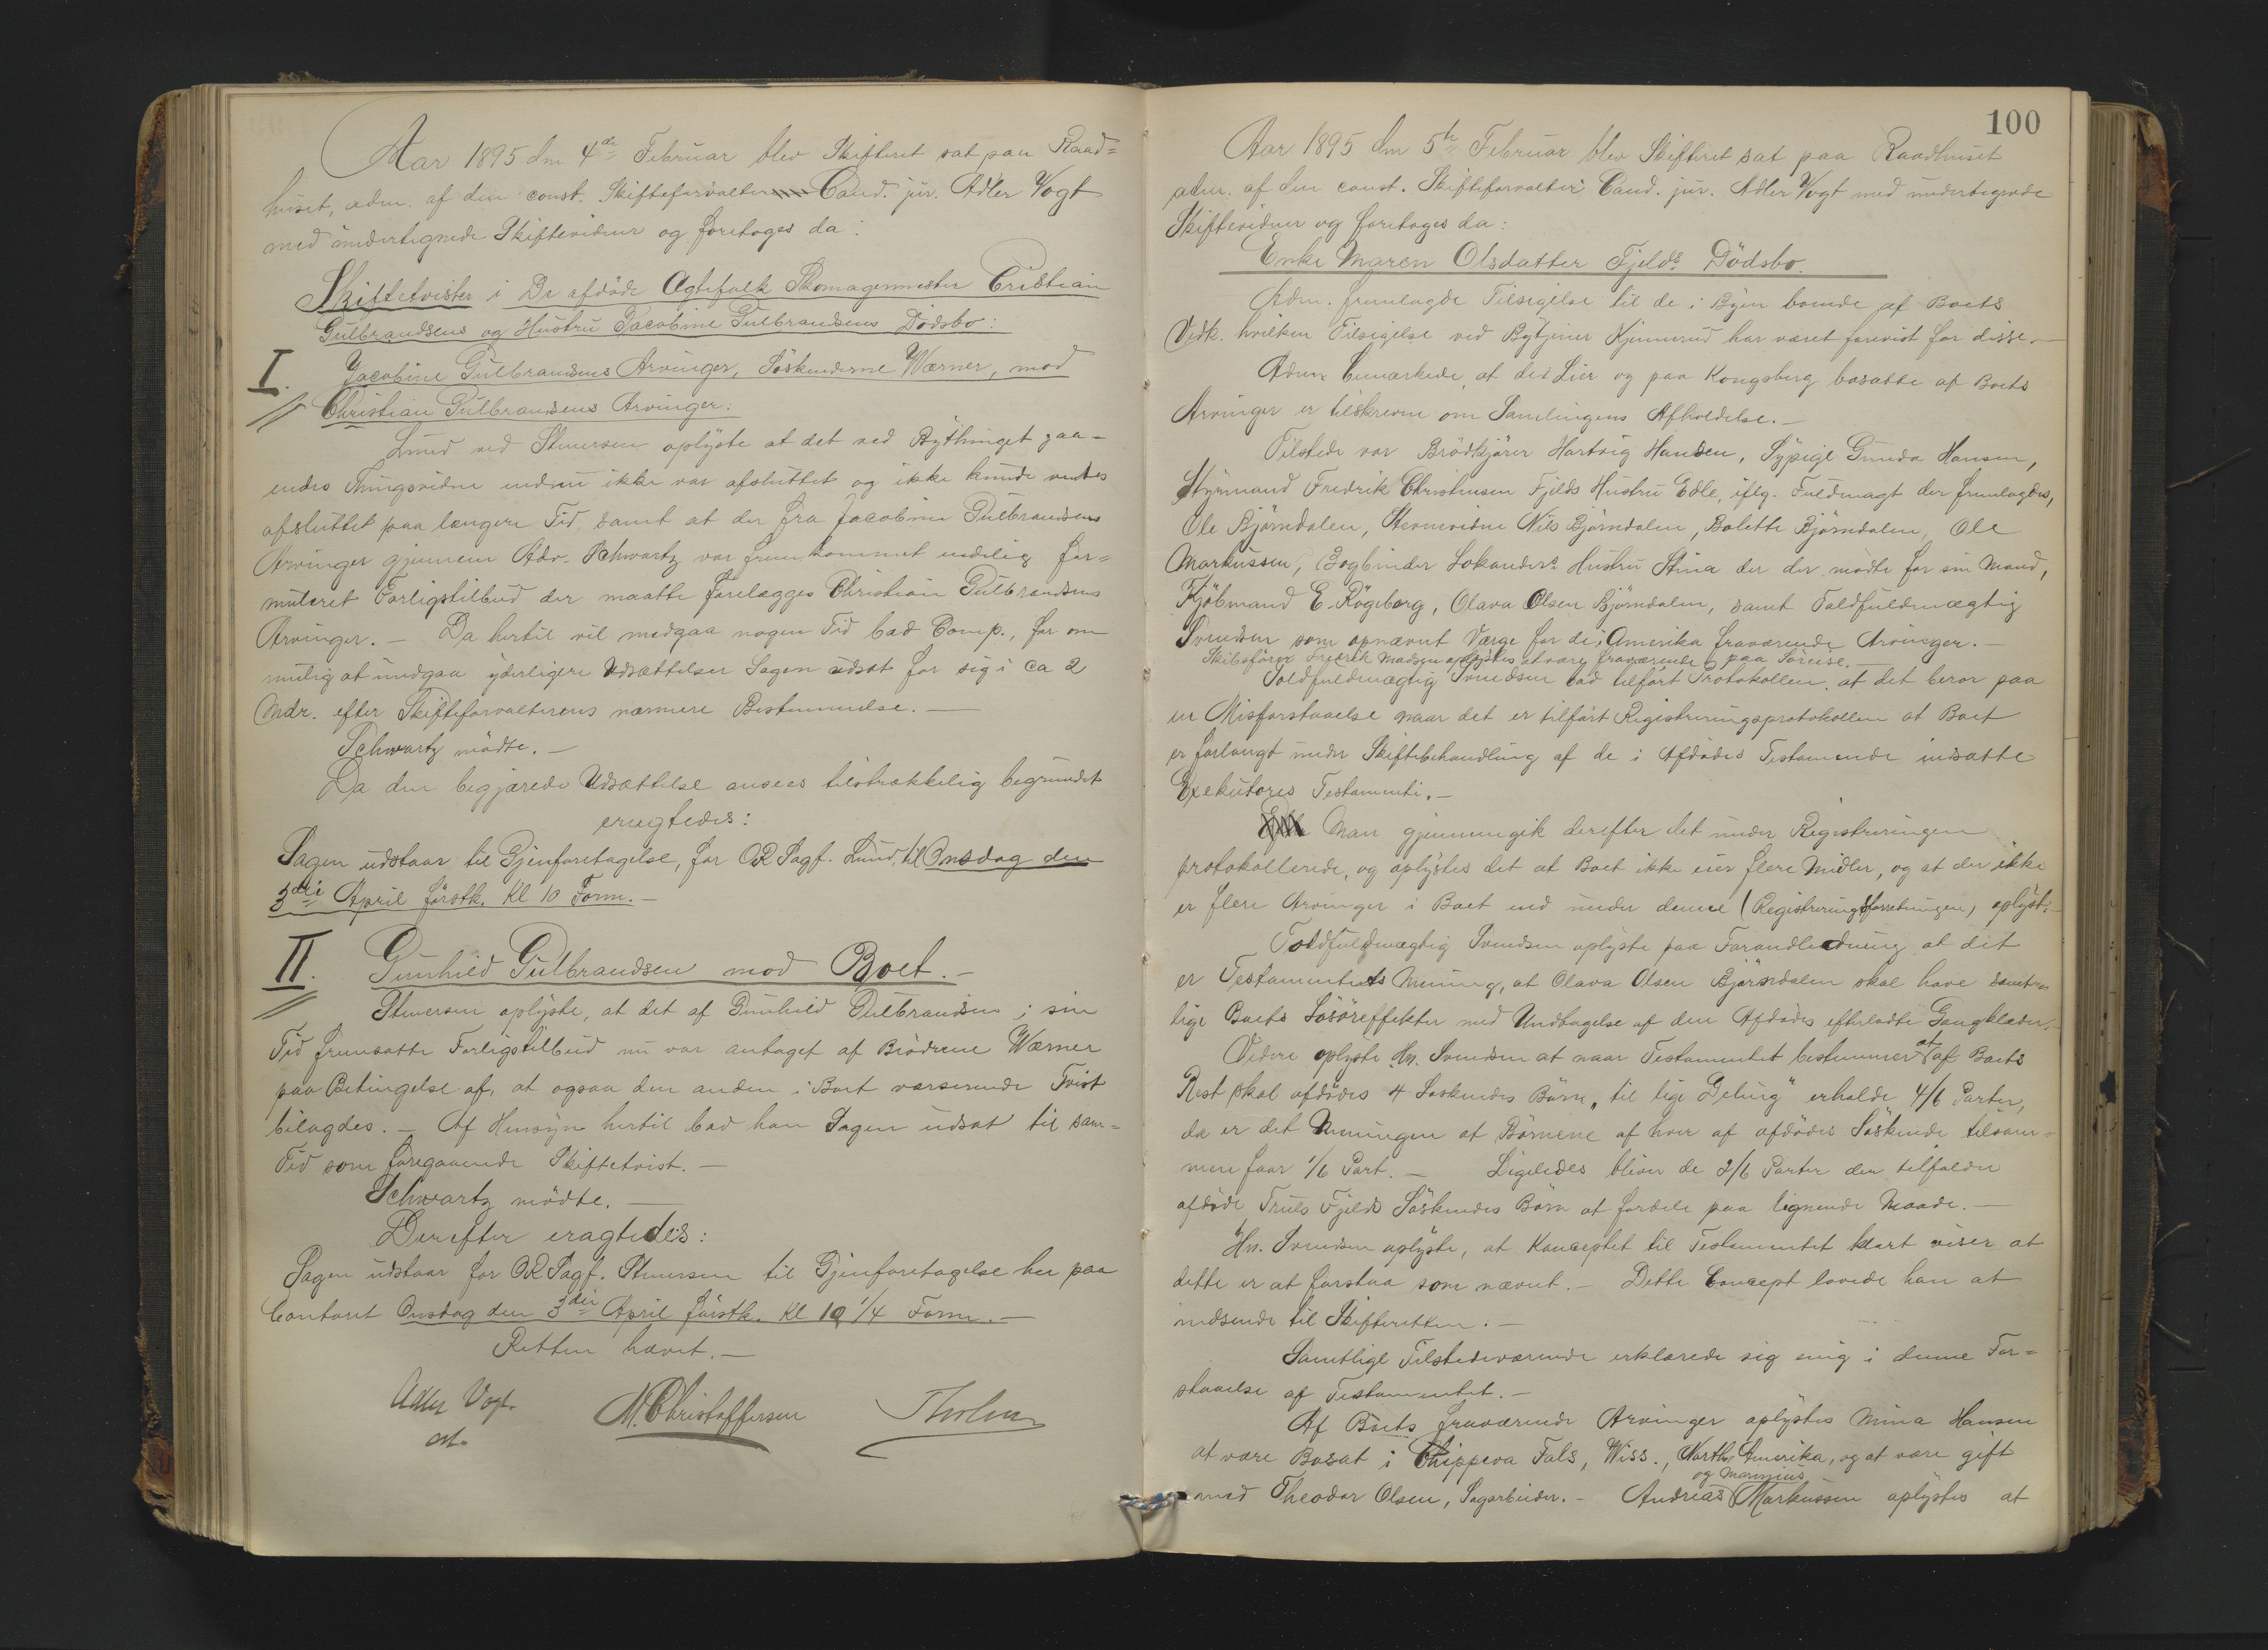 Aar 1895 den 4de Februar blev Skifteret sat paa Raad=
huset, adm. af den const. Skifteforvalter Cand. jur. Adler Vogt
med undertegnede Skiftevidner og foretoges da:
Skiftetvister i De afdöde Ægtefolk Skomagermester Cristian
Gulbrandsens og Hustru Jacobine Gulbrandsens Dödsbo:
I. Jacobine Gulbransens Arvinger, Söskenderne Wærner, mod
Christian Gulbransens Arvinger:
Lund ved Stuwersen oplyste at det ved Bythinget gaa-
endes Thingsvidne endnu ikke var afsluttet og ikke kunde ventes
afsluttet paa længere Tid, samt at der fra Jacobine Gulbrandsens
Arvinger gjennem Adv. Schwartz var fremkommet endelig for=
muleret Forligstilbud der maatte forelægges Christian Gulbrandsens
Arvinger. — Da hertil vil medgaa nogen Tid bad Comp., for om
mulig at undgaa yderligere Udsættelser Sagen udsat for sig i ca 2
Mdr. efter Skifteforvalterens nærmere Bestemmelse. —
Schwartz mödte. —
Da den begjærede Udsættelse ansees tilstrækkelig begrundet
eragtedes:
Sagen udstaar til Gjenforetagelse, for OR Sagf. Lund, til Onsdag den
3die April förstk. Kl 10 Form. —
II. Gunhild Gulbrandsen mod Boet. —
Stuwersen oplyste, at det af Gunhild Gulbrandsen i sin
Tid fremsatte Forligstilbud nu var antaget af Brödrene Wærner
paa Betingelse af, at ogsaa den anden i Boet verserende Tvist
bilagdes. — Af Hensyn hertil bad han Sagen udsat til sam=
Tid som foregaaende Skiftetvist. —
Schwartz mödte. —
Derefter eragtedes:
Sagen udstaar for OR Sagf. Stuwersen til Gjenforetagelse her paa
Contoret Onsdag den 3die April förstk. Kl 10 1/4 Form. —
Retten hævet. —
Adler Vogt.
cst.
M. Christoffersen
100
Aar 1895 den 5te Februar blev Skifteret sat paa Raadhuset
adm. af den const. Skifteforvalter Cand. jur. Adler Vogt med undertegnede
Skiftevidner og foretoges da:
Enke Maren Olsdatter Fjelds Dödsbo.
Adm. fremlagde Tilsigelse til de i Byen boende af Boets
Vedk. hvilken Tilsigelse ved Bytjener Kjennerud har været forevist for disse. —
Adm. bemærkede, at de i Lier og paa Kongsberg bosatte af Boets
Arvinger er tilskrevne om Samlingens Afholdelse. —
Tilstede var Brödkjörer Hartvig Hansen, Sypige Gunda Hansen,
Styrmand Fredrik Christensen Fjelds Hustru Edle, iflg. Fuldmagt der fremlagdes,
Ole Björndalen, Stevnevidne Nils Björndalen, Bolette Björndalen, Ole
Markussen, Bogbinder Lokanders Hustru Stina der der mödte for sin Mand,
Kjöbmand E. Rögeberg, Olava Olsen Björndalen, samt Toldfuldmægtig
Svendsen som opnævnt Værge for de i Amerika fraværende Arvinger. —
Skibsförer Fredrik Madsen oplystes at være fraværende paa Söreise. —
Toldfuldmægtig Svendsen bad tilfört Protokollen, at det beror paa
en Misforstaaelse naar det er tilfört Registreringsprotokollen at Boet
er forlangt under Skiftebehandling af de i Afdödes Testamente indsatte
Exekutores Testamenti. —
Man gjennemgik derefter det under Registreringen
protokollerede, og oplystes det at Boet ikke eier flere Midler, og at der ikke
er flere Arvinger i Boet end under denne (Registreringsforretningen) oplyst. —
Toldfuldmægtig Svendsen oplyste paa Foranledning at det
er Testamentets Mening, at Olava Olsen Björndalen skal have samt=
lige Boets Lösöreffekter med Undtagelse af den Afdödes efterladte Gangklæder. —
Videre oplyste Hr. Svendsen at naar Testamentet bestemmer at af Boets
Rest skal afdödes 4 Söskendes Börn "til lige Deling" erholde 4/6 Parter,
da er det Meningen at Börnene af hver af afdödes Söskende tilsam=
men faar 1/6 Part. — Ligeledes bliver de 2/6 Parter der tilfalder
afdöde Truls Fjelds Söskendes Börn at fordele paa lignende Maade. —
Hr. Svendsen oplyste, at Konceptet til Testamentet klart viser at
dette er at forstaa som nævnt. — Dette Concept lovede han at
indsende til Skifteretten. —
Samtlige Tilstedeværende erklærede sig enig i denne For=
staaelse af Testamentet. —
Af Boets fraværende Arvinger oplystes Mina Hansen
at være Bosat i Chippeva Fals, Wiss., North Amerika, og at være gift
med Theodor Olsen, Sagarbeider. — Andreas og Marinius Markussen oplystes at